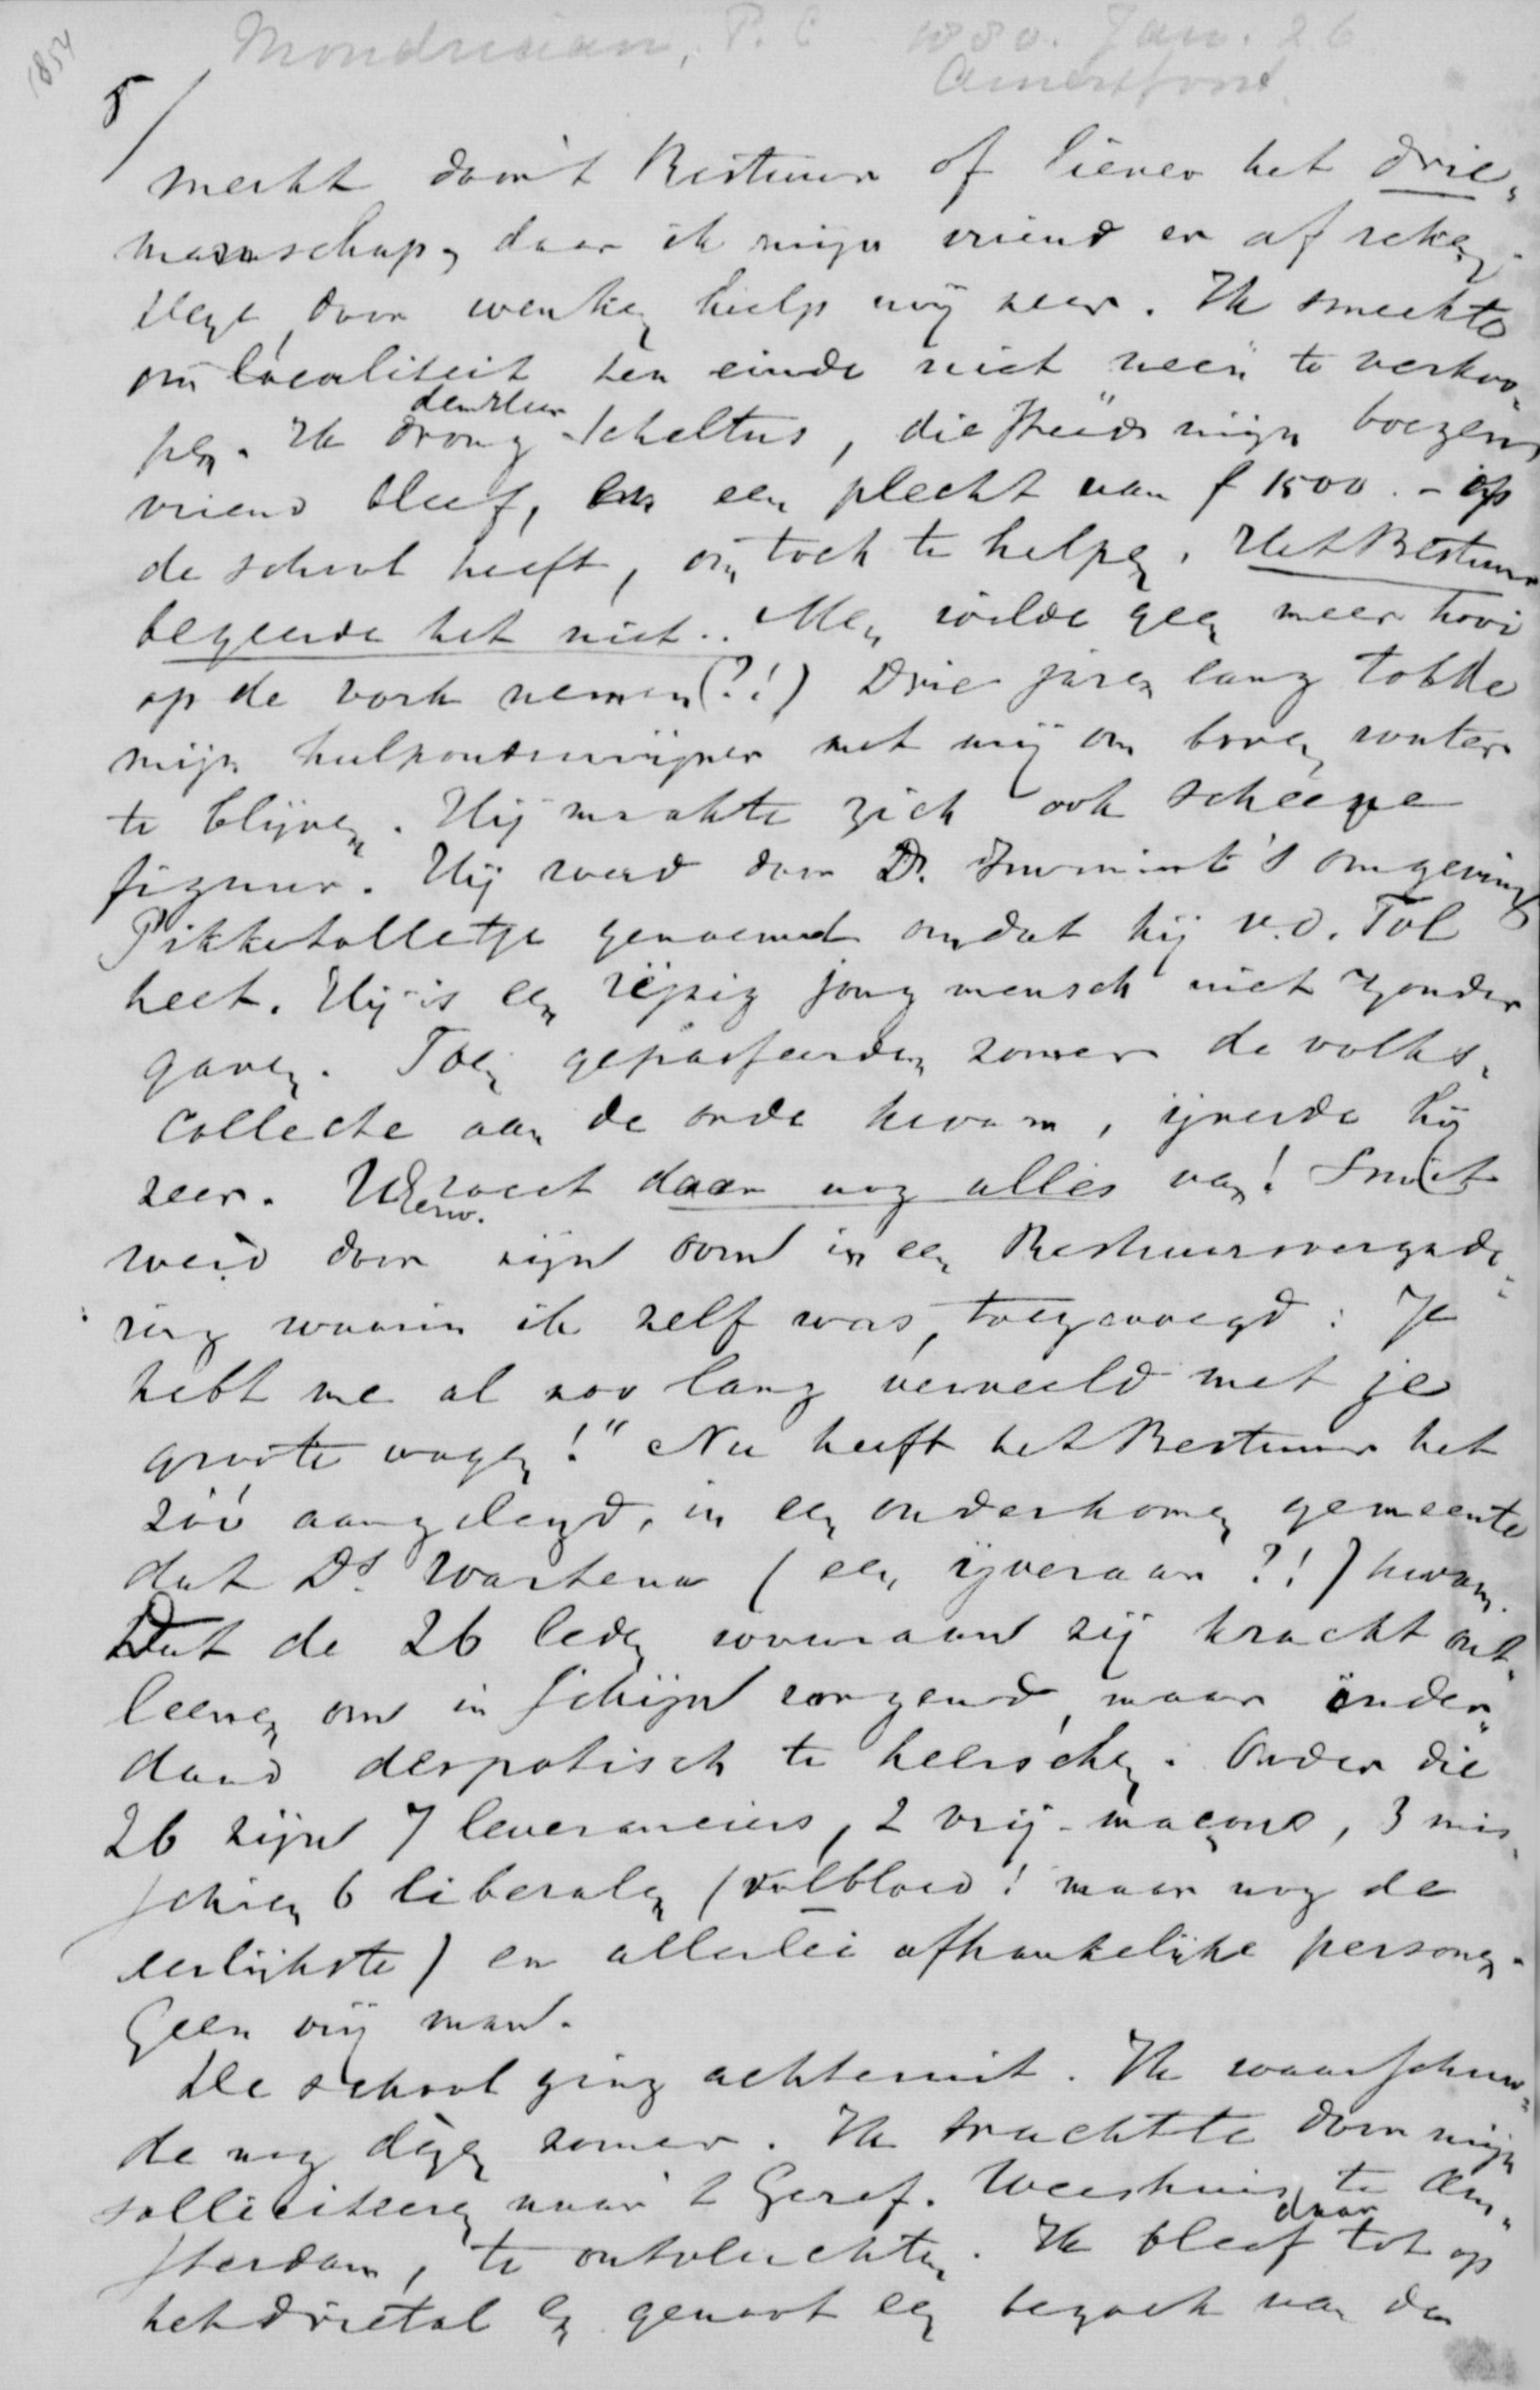 1854
Mondriaan, P. C 1880. Jan. 26
Amersfoort.
5/
merkt door 't Bestuur of liever het drie-
manschap, daar ik mijn vriend er af reken.
door wenken hielp mij zeer. Ik smeekte
om localiteit ten einde niet neen te verkoo-
pen. Ik drong den Heer Scheltus, die steeds mijn boezem
vriend bleef, en een plecht van f 1500.- op
de school heeft, om toch te helpen. Het Bestuur
begeerde het niet.. Men wilde geen meer hooi
op de vork nemen (?!) Drie jaren lang tobde
mijn hulponderwijzer met mij om boven water
te blijven. Hij maakte zich ook scheeve
figuur. Hij werd door Ds. omgeving
Pikketolletje genoemd omdat hij v.d. Tol
heet. Hij is een jong mensch niet zonder
gaven. Toen gepasseerden zomer de volks-
collecte aan de orde kwam, ijverde hij
zeer. UEerw. weet daar nog alles van! Smit
werd door zijn oom in een Bestuursvergade-
ring waarin ik zelf was, toegevoegd: Je
hebt me al zoo lang verveeld met je
groote wagen!" Nu heeft het Bestuur het
zóó aangelegd, in een onderkomen gemeente
dat Ds. Wartena (een ijveraar ?!) kwam.
Dat de 26 leden waaraan zij kracht ont-
leenen om in schijn zorgend, maar inder-
daad despotisch te heerschen. Onder die
26 zijn 7 leveranciers, 2 vrij-maçons, 3 mis-
schien 6 liberalen (volbloed! maar nog de
eerlijkste) en allerlei afhankelijke personen.
Geen vrij man.
De school ging achteruit. Ik waarschuw-
de nog dezen zomer. Ik trachtte door mijn
solliciteeren naar 't Geref. Weeshuis te Am-
sterdam, te ontvluchten. Ik bleef daar tot op
het drietal en genoot een bezoek van den